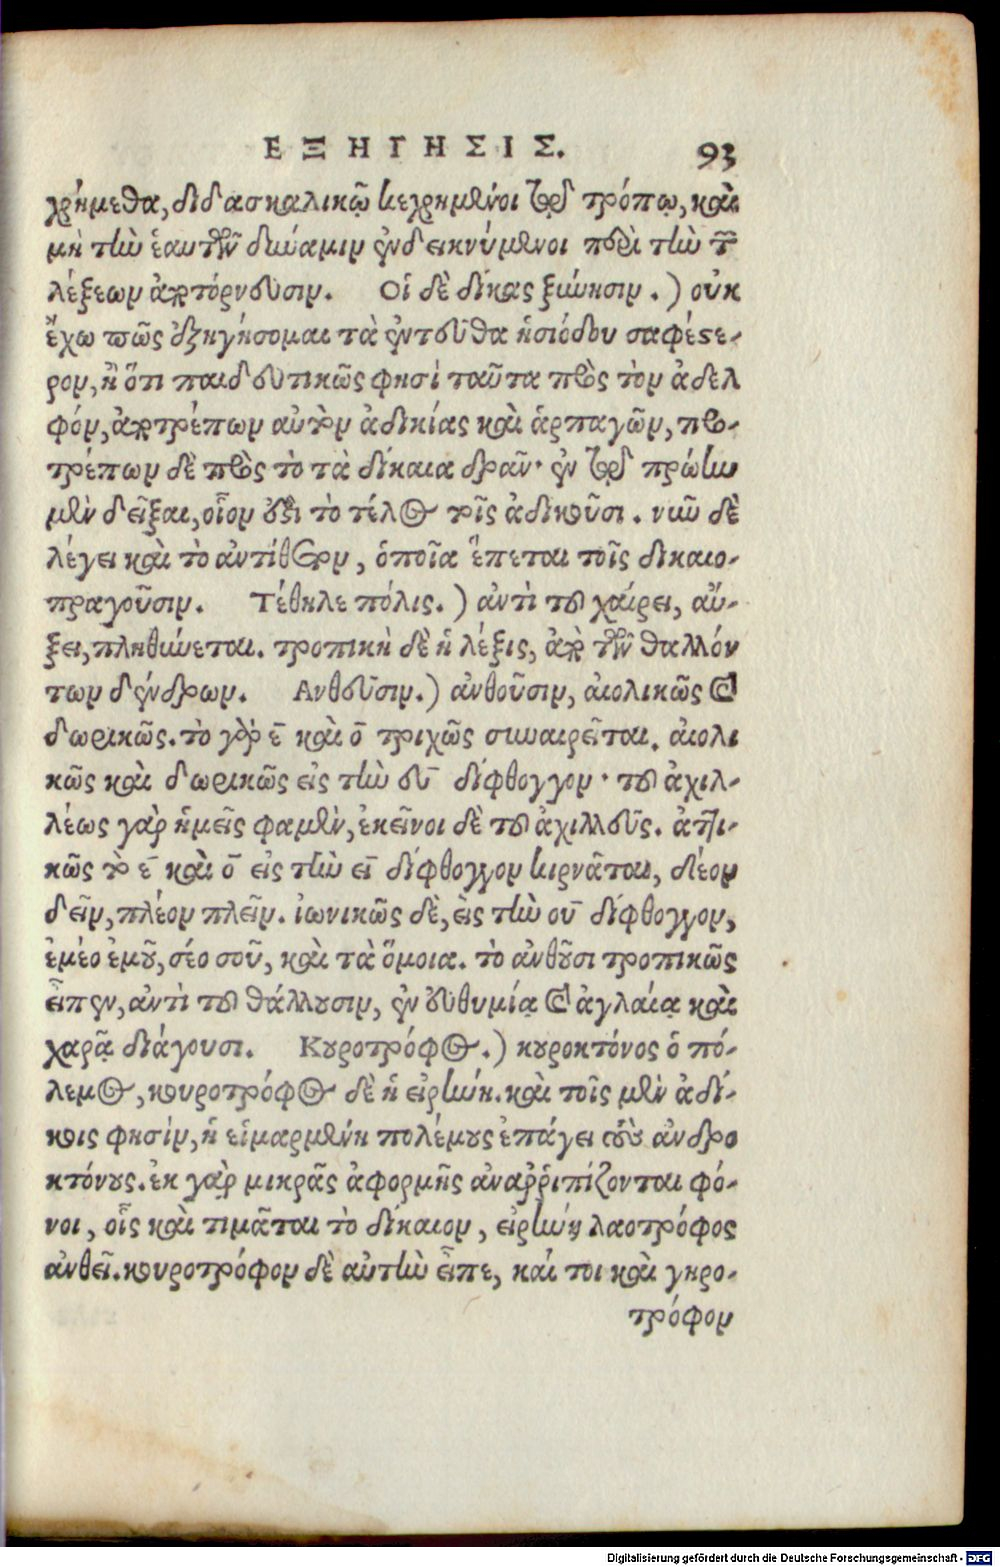 ΕΞΗΓΗΣΙΣ. 93
χρήμεθα, διδασκαλικῷ κεχρημένοι τῷ τρόπῳ, καὶ
μὴ τὴν ἑαυτῶν δύναμιν ἐνδεικνύμενοι περὶ τὴν τῶν
λέξεων ἀπτόρνευσιν. Οἱ δὲ δίκας ξυνήκησιν.) οὐκ
ἔχω πῶς ἐξηγήσομαι τὰ ἐντεῦθα ἡσιόδου σαφέστε-
ρον, ἢ ὅτι παιδευτικῶς φησὶ ταῦτα πρὸς τὸν ἀδελ
φόν, ἀποτρέπων αὐτὸν ἀδικίας καὶ ἁρπαγῶν, προ-
τρέπων δὲ πρὸς τὸ τὰ δίκαια δρᾶν· ἐν τῷ πρώην
μὲν δεῖξαι, οἷον ἐστι τὸ τέλος τοῖς ἀδικοῦσι. νῦν δὲ
λέγει καὶ τὸ ἀντίθετον, ὁποῖα ἕπεται τοῖς δικαιο-
πραγοῦσιν. Τέθηλε πόλις.) ἀντὶ τοῦ χαίρει, αὔ-
ξει, πληθύνεται. τροπικὴ δὲ ἡ λέξις, ἀπὸ τῶν θαλλόν
των δένδρων. Ανθεῦσιν.) ἀνθοῦσιν, αἰολικῶς καὶ
δωρικῶς. τὸ γὰρ ε̄ καὶ ο̄ τριχῶς συναιρεῖται. αἰολι
κῶς καὶ δωρικῶς εἰς τὴν εῡ δίφθογγον· τοῦ ἀχιλ-
λέως γὰρ ἡμεῖς φαμὲν, ἐκεῖνοι δὲ τοῦ ἀχιλλεῦς. ἀττι-
κῶς τὸ ε̄ καὶ ο̄ εἰς τὴν εῑ δίφθογγον κιρνᾶται, δέον
δεῖν, πλέον πλεῖν. ἰωνικῶς δὲ, εἰς τὴν οῡ δίφθογγον,
ἐμέο ἐμοῦ, σέο σοῦ, καὶ τὰ ὅμοια. τὸ ἀνθοῦσι τροπικῶς
εἶπεν, ἀντὶ τοῦ θάλλουσιν, ἐν εὐθυμίᾳ καὶ ἀγλαΐᾳ καὶ
χαρᾷ διάγουσι. Κουροτρόφος.) κουροκτόνος ὁ πό-
λεμος, κουροτρόφος δὲ ἡ εἰρήνη. καὶ τοῖς μὲν ἀδί-
κοις φησὶν, ἡ εἱμαρμένη πολέμους ἐπάγει τοὺς ἀνδρο
κτόνους. ἐκ γὰρ μικρᾶς ἀφορμῆς ἀναῤῥιπίζονται φό-
νοι, οἷς καὶ τιμᾶται τὸ δίκαιον, εἰρήνη λαοτρόφος
ἀνθεῖ. κουροτρόφον δὲ αὐτὴν εἶπε, καί τοι καὶ γηρο-
τρόφον
Digitalisierung gefördert durch die Deutsche Forschungsgemeinschaft - DFG